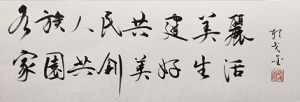 各族人民共建美麗
家園共創美好生活